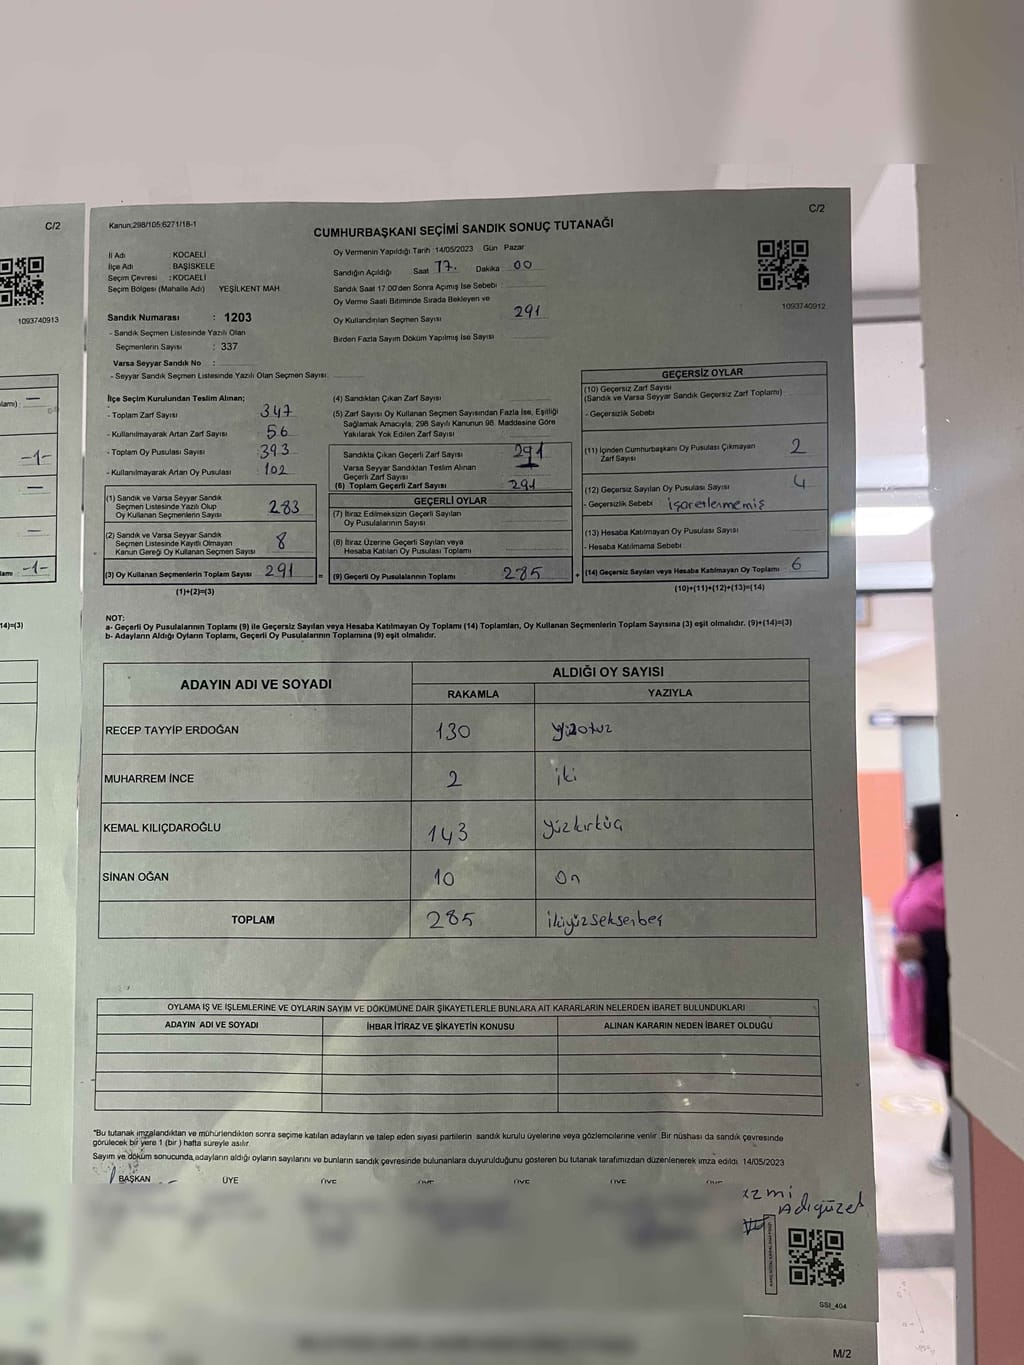 C/2
1093740913
-1-
-1-
14)=(3)
Kanun:298/105;6271/18-1
C/2
CUMHURBAŞKANI SEÇİMİ SANDIK SONUÇ TUTANAĞI
1093740912
İl Adı KOCAELİ
İlçe Adı BAŞİSKELE
Seçim Çevresi : KOCAELİ
Seçim Bölgesi (Mahalle Adı) YEŞİLKENT MAH
Sandık Numarası : 1203
- Sandık Seçmen Listesinde Yazılı Olan
Seçmenlerin Sayısı : 337
Varsa Seyyar Sandık No :
- Seyyar Sandık Seçmen Listesinde Yazılı Olan Seçmen Sayısı:
Oy Vermenin Yapıldığı Tarih :14/05/2023 Gün Pazar
Sandığın Açıldığı Saat 17. Dakika 00
Sandık Saat 17:00'den Sonra Açımış İse Sebebi :
Oy Verme Saati Bitiminde Sırada Bekleyen ve
Oy Kullandırılan Seçmen Sayısı 291
Birden Fazla Sayım Döküm Yapılmış İse Sayısı
İlçe Seçim Kurulundan Teslim Alınan;
- Toplam Zarf Sayısı 347
- Kullanılmayarak Artan Zarf Sayısı 56
- Toplam Oy Pusulası Sayısı 393
- Kullanılmayarak Artan Oy Pusulası 102
(1) Sandık ve Varsa Seyyar Sandık
Seçmen Listesinde Yazılı Olup
Oy Kullanan Seçmenlerın Sayısı 283
(2) Sandık ve Varsa Seyyar Sandık
Seçmen Listesinde Kayıtlı Olmayan
Kanun Gereği Oy Kullanan Seçmen Sayısı 8
(3) Oy Kullanan Seçmenlerin Toplam Sayısı 291
(1)+(2)=(3)
(4) Sandıktan Çıkan Zarf Sayısı
(5) Zarf Sayısı Oy Kullanan Seçmen Sayısından Fazla İse, Eşitliği
Sağlamak Amacıyla, 298 Sayılı Kanunun 98. Maddesine Göre
Yakılarak Yok Edilen Zarf Sayısı
Sandıkta Çıkan Geçerli Zarf Sayısı 291
Varsa Seyyar Sandıktan Teslim Alınan
Geçerli Zarf Sayısı
(6) Toplam Geçerli Zarf Sayısı 291
GEÇERLİ OYLAR
(7) İtiraz Edilmeksizin Geçerli Sayılan
Oy Pusulalarının Sayısı
(8) İtiraz Üzerine Geçerli Sayılan veya
Hesaba Katılan Oy Pusulası Toplamı
= (9) Geçerli Oy Pusulalarının Toplamı 285 +
GEÇERSİZ OYLAR
(10) Geçersiz Zarf Sayısı
(Sandık ve Varsa Seyyar Sandık Geçersiz Zarf Toplamı)
- Geçersizlik Sebebi
(11) İçinden Cumhurbaşkanı Oy Pusulası Çıkmayan
Zarf Sayısı 2
(12) Geçersiz Sayılan Oy Pusulası Sayısı 4
- Geçersizlik Sebebi işaretlenmemiş
(13) Hesaba Katılmayan Oy Pusulası Sayısı
- Hesaba Katılmama Sebebi
(14) Geçersiz Sayılan veya Hesaba Katılmayan Oy Toplamı 6
(10)+(11)+(12)+(13)=(14)
NOT:
a- Geçerli Oy Pusulalarının Toplamı (9) ile Geçersiz Sayılan veya Hesaba Katılmayan Oy Toplamı (14) Toplamları, Oy Kullanan Seçmenlerin Toplam Sayısına (3) eşit olmalıdır. (9)+(14)=(3)
b- Adayların Aldığı Oyların Toplamı, Geçerli Oy Pusulalarının Toplamına (9) eşit olmalıdır.
ADAYIN ADI VE SOYADI ALDIĞI OY SAYISI
RAKAMLA YAZIYLA
RECEP TAYYİP ERDOĞAN 130 yüzotuz
MUHARREM İNCE 2 iki
KEMAL KILIÇDAROĞLU 143 yüzkırküç
SİNAN OĞAN 10 On
TOPLAM 285 ikiyüzseksenbeş
OYLAMA İŞ VE İŞLEMLERİNE VE OYLARIN SAYIM VE DÖKÜMÜNE DAİR ŞİKAYETLERLE BUNLARA AİT KARARLARIN NELERDEN İBARET BULUNDUKLARI
ADAYIN ADI VE SOYADI İHBAR İTİRAZ VE ŞİKAYETİN KONUSU ALINAN KARARIN NEDEN İBARET OLDUĞU
*Bu tutanak imzalandıktan ve mühürlendikten sonra seçime katılan adayların ve talep eden siyasi partilerin sandık kurulu üyelerine veya gözlemcilerine verilir. Bir nüshası da sandık çevresinde
görülecek bir yere 1 (bir ) hafta süreyle asılır.
Sayım ve döküm sonucunda,adayların aldığı oyların sayılarını ve bunların sandık çevresinde bulunanlara duyurulduğunu gösteren bu tutanak tarafımızdan düzenlenerek imza edildi. 14/05/2023
BAŞKAN ÜYE ÜYE ÜYE ÜYE ÜYE ÜYE
Adıgüzel
SSI_404
M/2